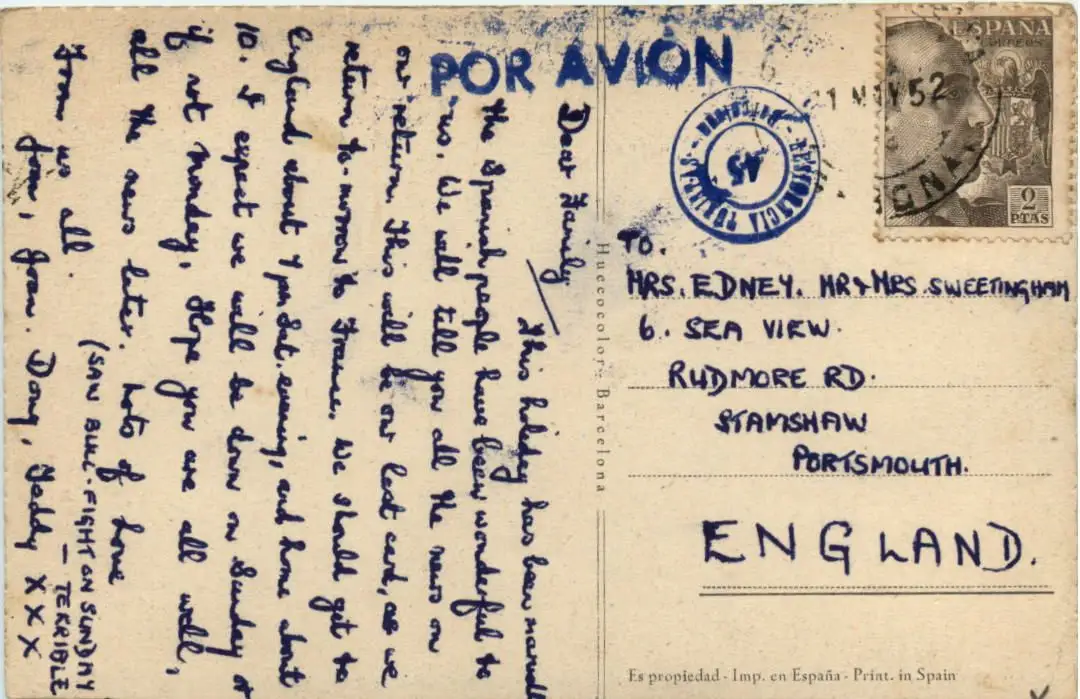 POR AVIÓN
Dear Family
This holiday has been
the Spanish people have been wonderful to
us. We will tell you all the news on
our return. This will be our last card, as we
return to-morrow to France. We should get to
England about 4 pm Sat. evening, and home about
10. I expect we will be down on Sunday or
if not Monday. Hope you are all well,
all the news later. lots of love
From us all.
Joan. Doug, Teddy X X X
(SAW BULL-FIGHT ON SUNDAY
— TERRIBLE
Huecocolor - Barcelona
1 MAY 52
ESPAÑA
CORREOS
2
PTAS
45
TO.
MRS. EDNEY. MR & MRS. SWEETINGHAM
6. SEA VIEW.
RUDMORE RD.
STAMSHAW
PORTSMOUTH.
ENGLAND.
Es propiedad - Imp. en España - Print. in Spain